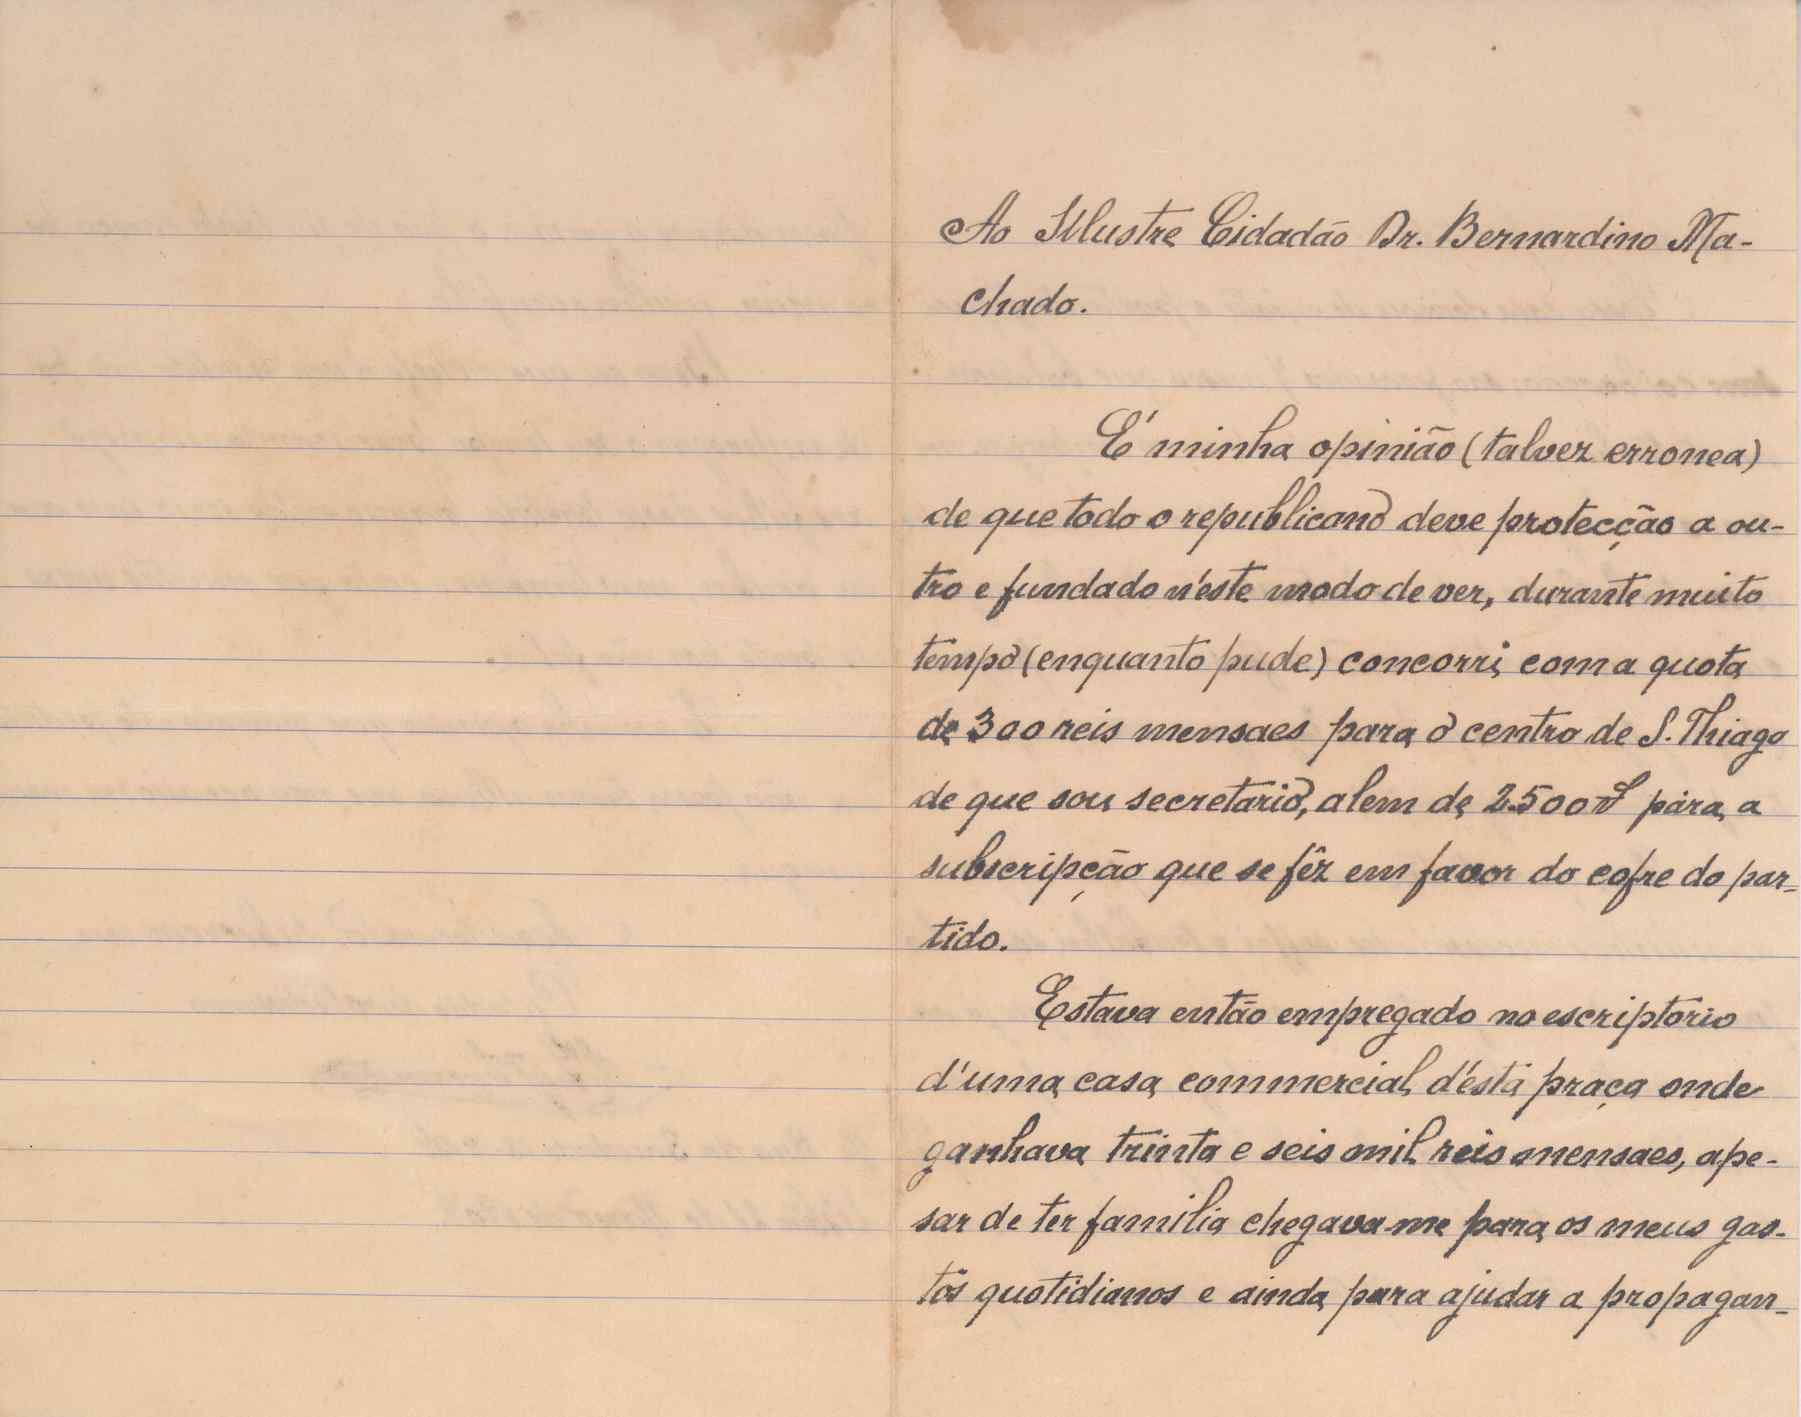 Ao Illustre Cidadão Dr. Bernardino Ma-
chado.
É minha opinião (talvez erronea)
de que todo o republicano deve protecção a ou-
tro e fundado n'éste modo de ver, durante muito
tempo (enquanto pude) concorri com a quota
de 300 reis mensaes para o centro de S. Thiago
de que sou secretario, alem de 2.500 para a
subscripção que se fêz em favor do cofre do par-
tido.
Estava então empregado no escriptorio
d'uma casa commercial d'ésta praça onde
ganhava trinta e seis mil reis mensaes, ape-
sar de ter familia chegava-me para os meus gas-
tos quotidianos e ainda para ajudar a propagan-